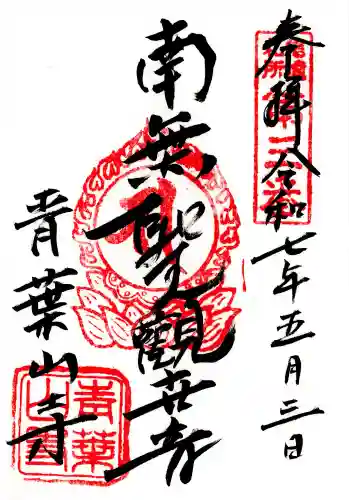 奉拝 令和七年五月三日
南無聖観世音
青葉山寺
青葉